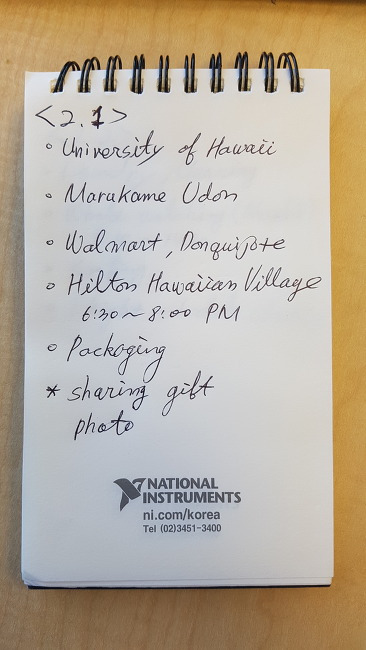 <2.1>
◦ University of Hawaii
◦ Marukame Udon
◦ Walmart, Donquijote
◦ Hilton Hawaiian Village
6:30 ~ 8:00 PM
◦ Packaging
* sharing gift
photo
NATIONAL
INSTRUMENTS
ni.com/korea
Tel (02)3451-3400